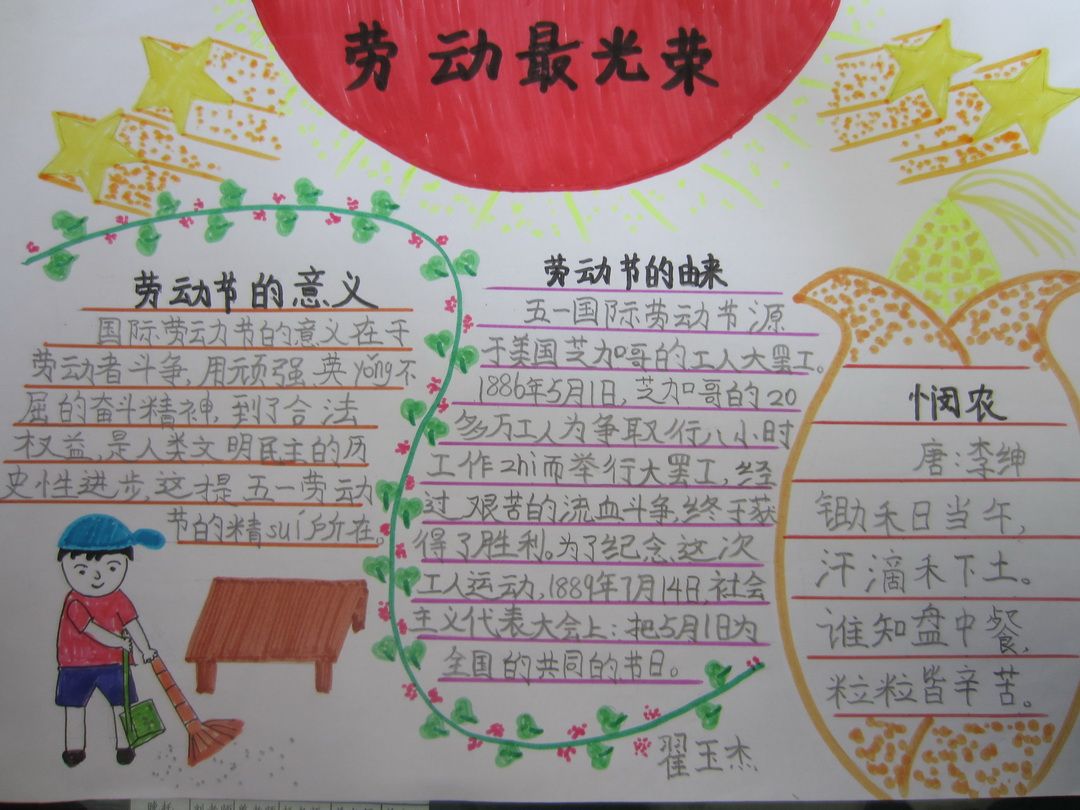 劳动最光荣
劳动节的意义
国际劳动节的意义在于
劳动者斗争,用顽强、英yǒng不
屈的奋斗精神,到了合法
权益,是人类文明民主的历
史性进步,这才是五一劳动
节的精suí所在。
劳动节的由来
五一国际劳动节源
于美国芝加哥的工人大罢工。
1886年5月1日,芝加哥的20
多万工人为争取行八小时
工作zhì而举行大罢工,经
过艰苦的流血斗争,终于获
得了胜利。为了纪念这次
工人运动,1889年7月14日,社会
主义代表大会上:把5月1日为
全国的共同的节日。
翟玉杰
悯农
唐:李绅
锄禾日当午,
汗滴禾下土。
谁知盘中餐,
粒粒皆辛苦。